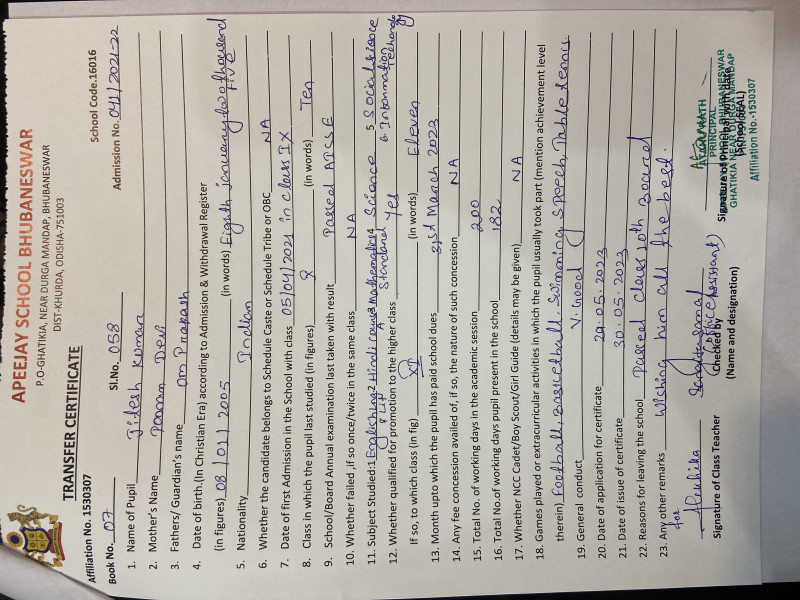 APEEJAY SCHOOL BHUBANESWAR
P.O-GHATIKIA, NEAR DURGA MANDAP, BHUBANESWAR
DIST-KHURDA, ODISHA-751003
TRANSFER CERTIFICATE
Affiliation No. 1530307 School Code.16016
Book No. 07 Sl.No. 058 Admission No. 041/2021-22
1. Name of Pupil Jitesh Kumar
2. Mother's Name Poonam Devi
3. Fathers/ Guardian's name Om Prakash
4. Date of birth,(In Christian Era) according to Admission & Withdrawal Register
(in figures) 08/01/2005 (in words) Eighth january two thousand five
5. Nationality Indian
6. Whether the candidate belongs to Schedule Caste or Schedule Tribe or OBC NA
7. Date of first Admission in the School with class 05/04/2021 in class IX
8. Class in which the pupil last studied (in figures) (in words) Ten
9. School/Board Annual examination last taken with result Passed AISSE
10. Whether failed ,if so once/twice in the same class NA
11. Subject Studied:1 English Lng & Lit 2 Hindi course A 3 Mathematics Standard 4 Science 5 Social Science 6 Information Technology
12. Whether qualified for promotion to the higher class Yes
If so, to which class (in fig) XI (in words) Eleven
13. Month upto which the pupil has paid school dues 31st March 2023
14. Any fee concession availed of, if so, the nature of such concession NA
15. Total No. of working days in the academic session 200
16. Total No.of working days pupil present in the school 182
17. Whether NCC Cadet/Boy Scout/Girl Guide (details may be given) NA
18. Games played or extracurricular activities in which the pupil usually took part (mention achievement level
therein) Football, Basketball, Swimming Speech, Table tennis
19. General conduct V. Good
20. Date of application for certificate 29.05.2023
21. Date of issue of certificate 30.05.2023
22. Reasons for leaving the school Passed class 10th board
23. Any other remarks Wishing him all the best.
for
Signature of Class Teacher
(Office Assistant)
Checked by
(Name and designation)
PRINCIPAL
Signature of Principal with date
(School SEAL)
GHATIKIA NEAR DURGA MANDAP
Affiliation No.-1530307